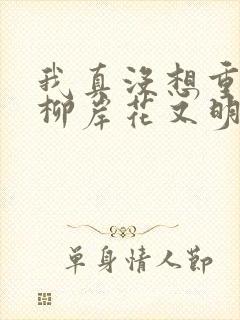 我真没想重
柳岸花又明
单身情人节